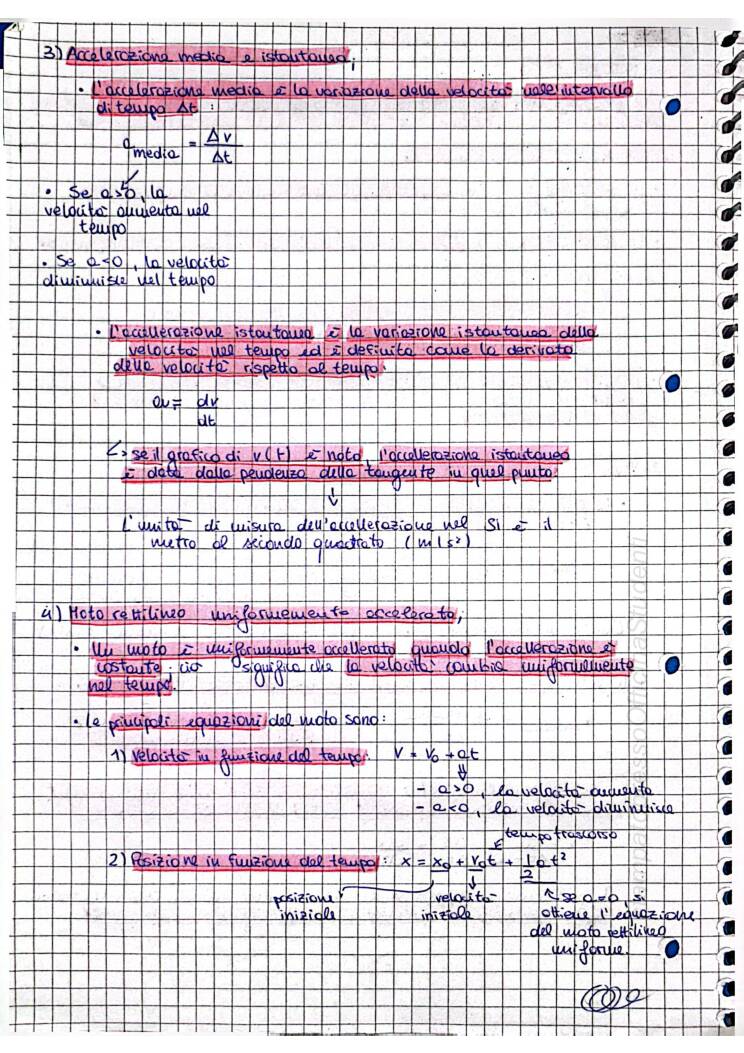 3) Accelerazione media e istantanea;
• L'accelerazione media è la variazione della velocità nell'intervallo
di tempo Δt :
a media = Δv / Δt
• Se a>0, la
velocità aumenta nel
tempo
• Se a<0, la velocità
diminuisce nel tempo
• L'accellerazione istantanea è la variazione istantanea della
velocità nel tempo ed è definita come la derivata
della velocità rispetto al tempo.
= dv
dt
↳ se il grafico di v(t) è noto, l'accellerazione istantanea
è data dalla pendenza della tangente in quel punto.
↓
L'unità di misura dell'accellerazione nel SI è il
metro al secondo quadrato (m/s²)
4) Moto rettilineo uniformemente accelerato;
• Un moto è uniformemente accellerato quando l'accellerazione è
costante: ciò significa che la velocità cambia uniformemente
nel tempo.
• Le principali equazioni del moto sono:
1) Velocità in funzione del tempo: V = V₀ + at
⇓
- a>0, la velocità aumenta
- a<0, la velocità diminuisce
tempo trascorso
2) Posizione in funzione del tempo: x = x₀ + v₀t + 1/2 a t²
posizione iniziale
velocità iniziale
↖ se a=0, si
ottiene l'equazione
del moto rettilineo
uniforme.